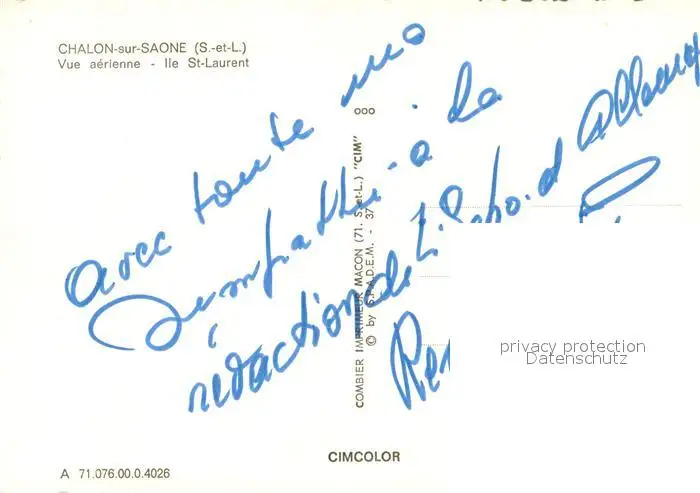 CHALON-sur-SAONE (S.-et-L.)
Vue aérienne - Ile St-Laurent
avec toute ma
sympathie à la
rédaction de
ooo
COMBIER IMPRIMEUR MACON (71. S.-et-L.) "CIM"
© by S.P.A.D.E.M. - 37
privacy protection
Datenschutz
CIMCOLOR
A 71.076.00.0.4026